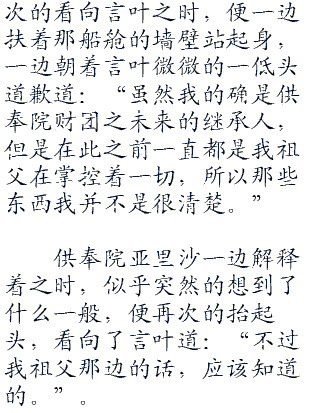 次的看向言叶之时，便一边
扶着那船舱的墙壁站起身，
一边朝着言叶微微的一低头
道歉道：“虽然我的确是供
奉院财团之未来的继承人，
但是在此之前一直都是我祖
父在掌控着一切，所以那些
东西我并不是很清楚。”
供奉院亚里沙一边解释
着之时，似乎突然的想到了
什么一般，便再次的抬起
头，看向了言叶道：“不过
我祖父那边的话，应该知道
的。”。